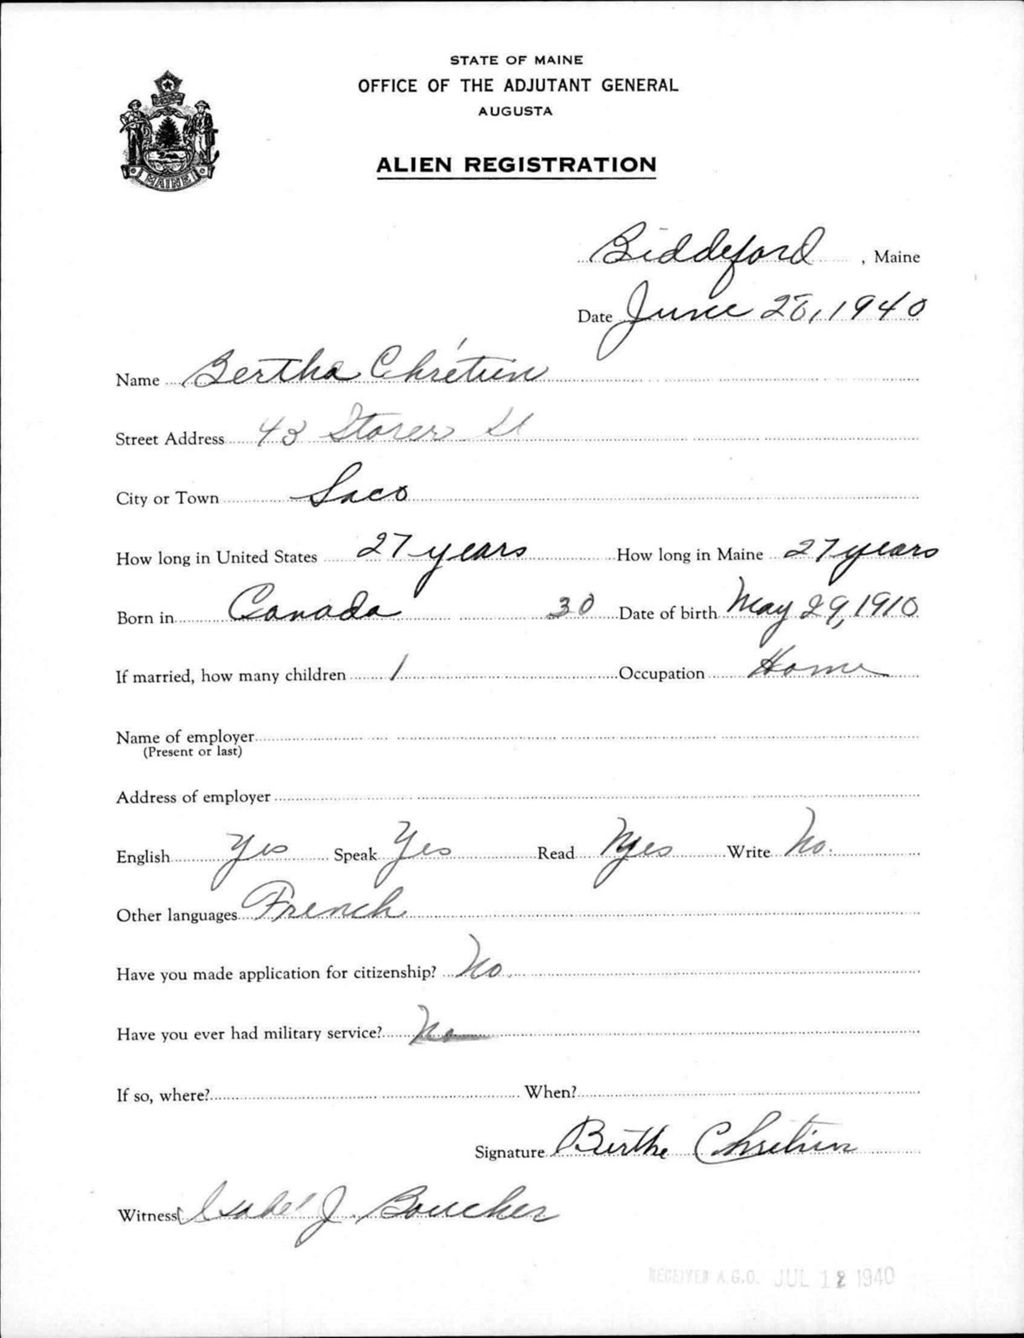 STATE OF MAINE
OFFICE OF THE ADJUTANT GENERAL
AUGUSTA
MAINE
ALIEN REGISTRATION
Biddeford, Maine
Date June 28, 1940
Name Bertha Chrétien
Street Address 43 Storer St
City or Town Saco
How long in United States 27 years How long in Maine 27 years
Born in Canada 30 Date of birth May 29, 1910
If married, how many children 1 Occupation Home
Name of employer
(Present or last)
Address of employer
English Yes Speak Yes Read Yes Write No.
Other languages French
Have you made application for citizenship? No.
Have you ever had military service? No
If so, where? When?
Signature Berthe Chrétien
Witness Isabel J. Boucher
RECEIVED A.G.O. JUL 12 1940